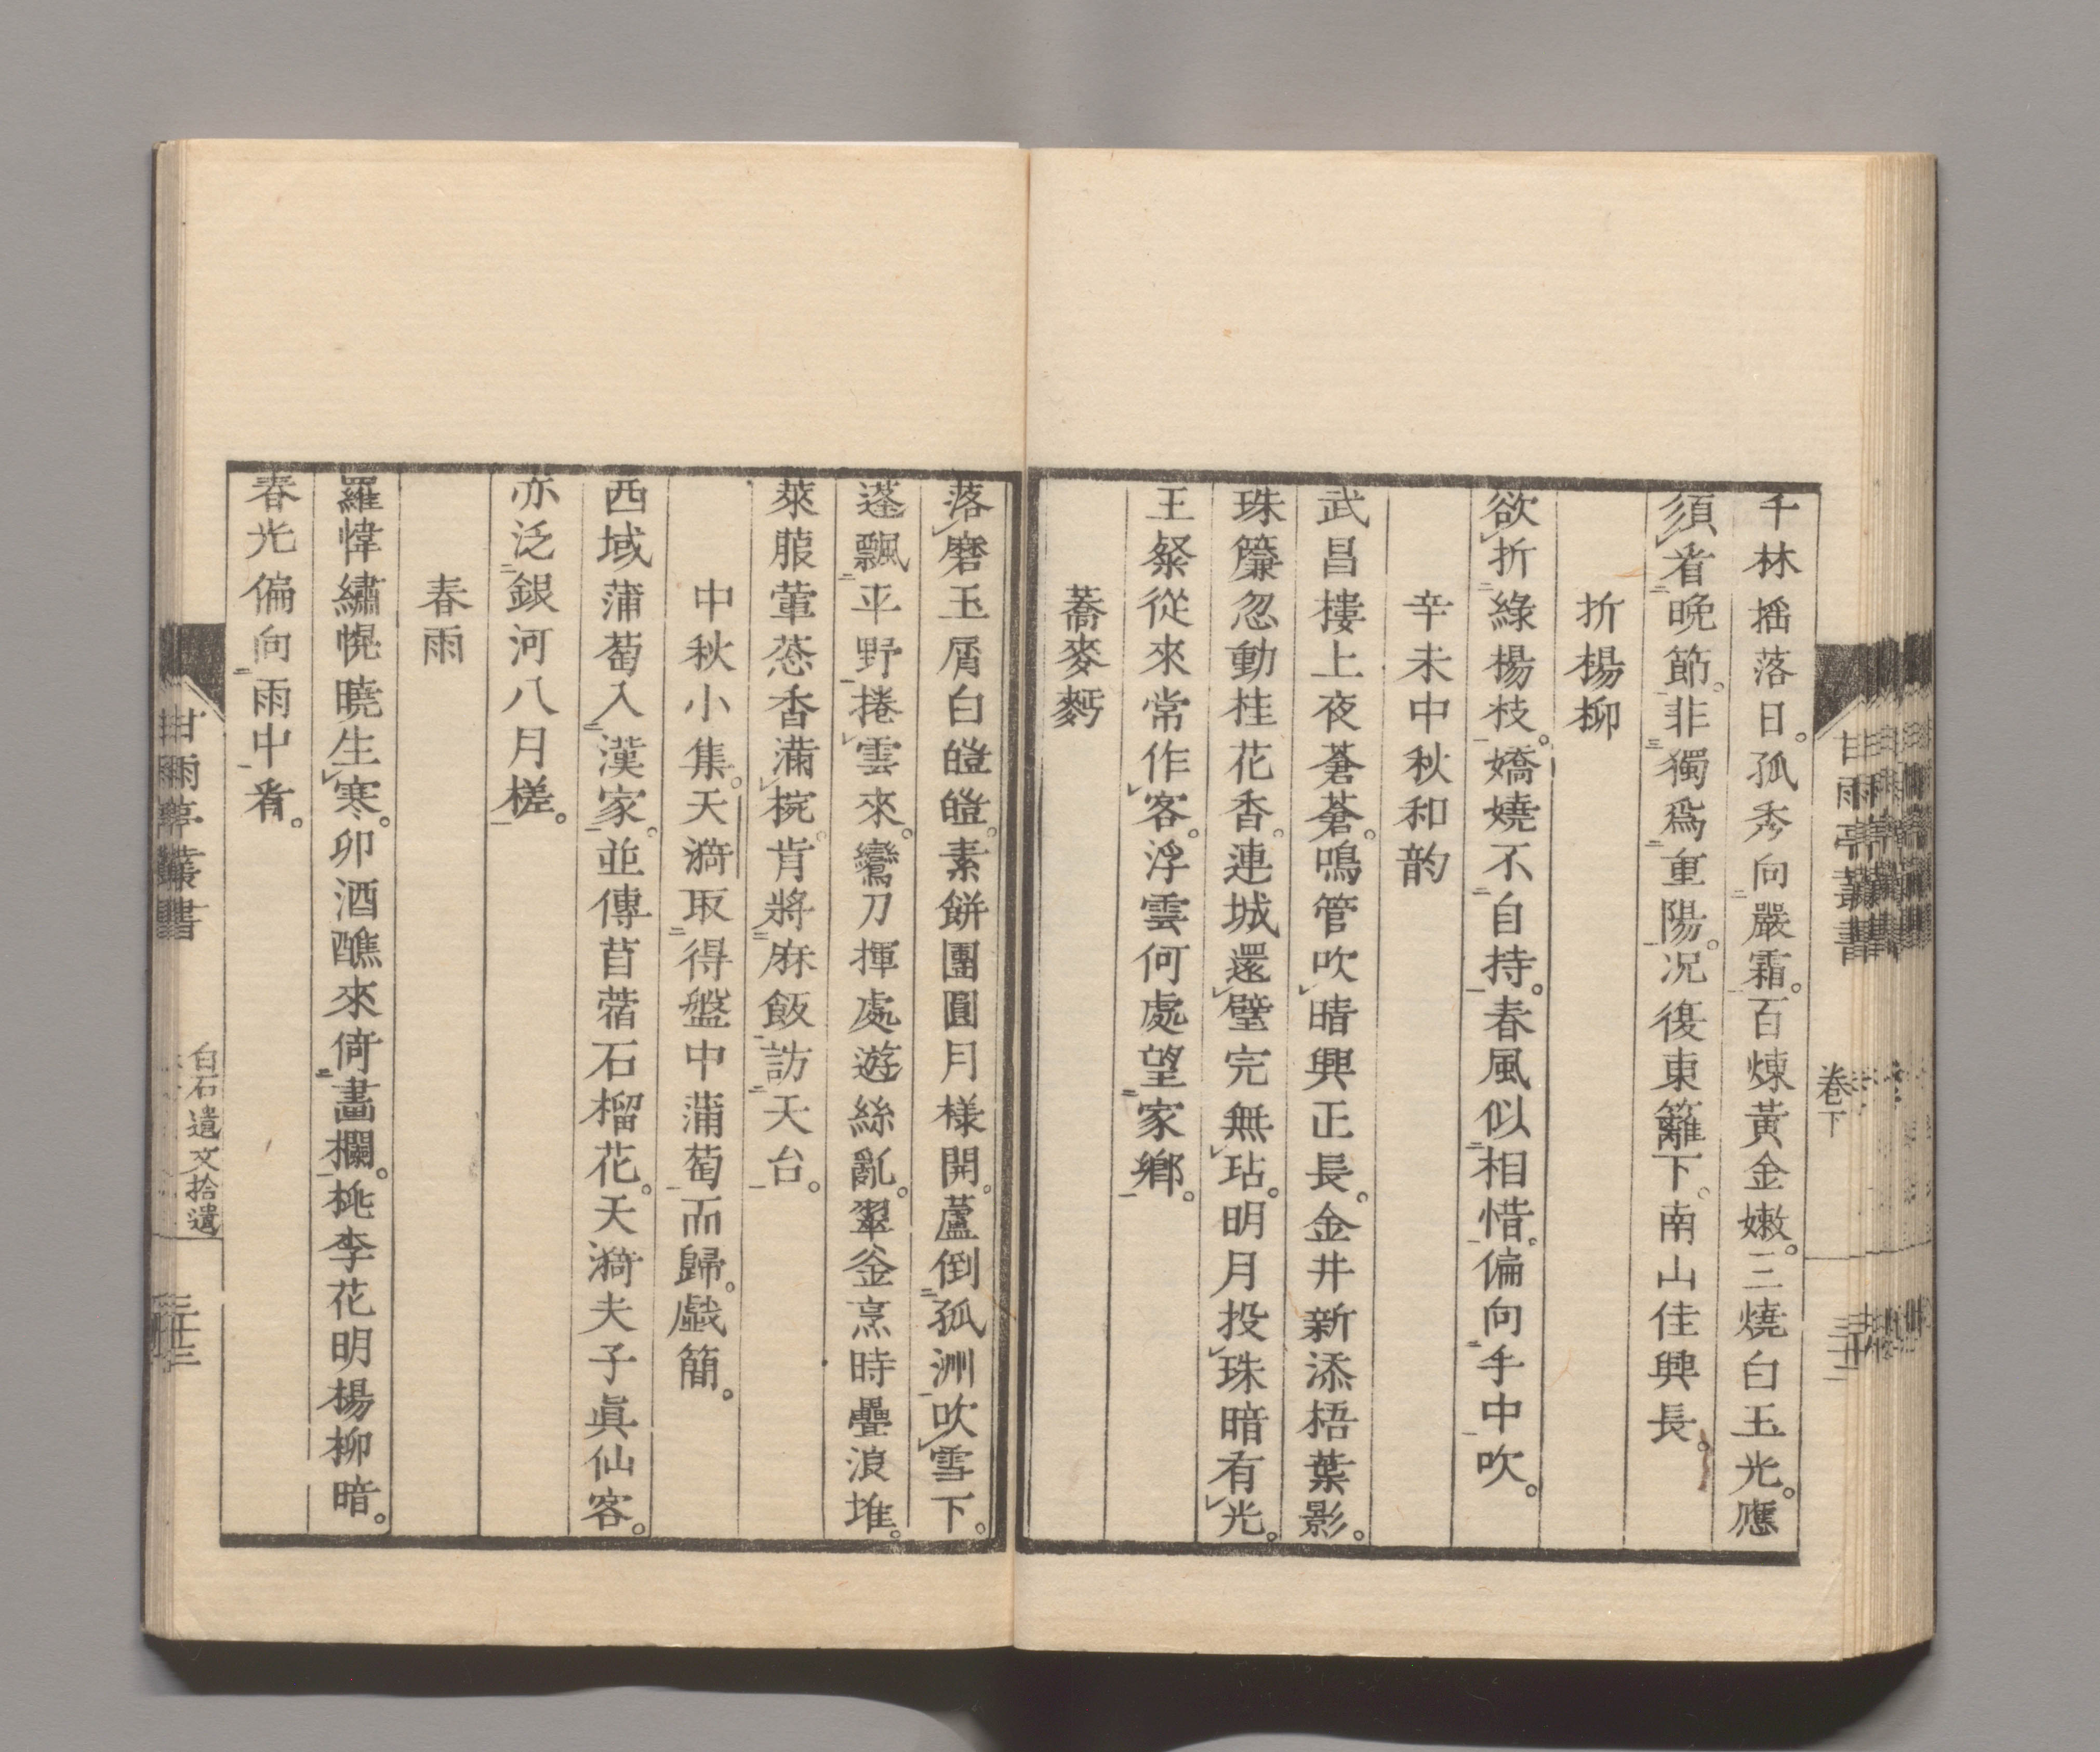 千林搖落日。孤秀向嚴霜。百煉黃金嫩。三燒白玉光。應
須看晩節。非獨爲重陽。况復東籬下。南山佳興長。
折楊柳
欲折綠楊枝。嬌嬈不自持。春風似相惜。偏向手中吹。
辛未中秋和韵
武昌樓上夜蒼蒼。鳴管吹晴興正長。金井新添梧葉影。
珠簾忽動桂花香。連城還璧完無玷。明月投珠暗有光。
王粲從來常作客。浮雲何處望家鄉。
蕎麥麪
落磨玉屑白皚皚。素餅團圓月樣開。蘆倒孤洲吹雪下。
蓬飄平野捲雲來。鸞刀揮處遊絲亂。翠釜烹時疊浪堆。
萊菔葷葱香滿椀。肯將麻飯訪天台。
中秋小集。天漪取得盤中蒲萄而歸。戯簡。
西域蒲萄入漢家。並傳苜蓿石榴花。天漪夫子眞仙客。
亦泛銀河八月槎。
春雨
羅幃繡幌曉生寒。卯酒醮來倚畵欄。桃李花明楊柳暗。
春光偏向雨中看。
甘雨亭叢書
卷下
三十二
甘雨亭叢書
白石遺文拾遺
三十三